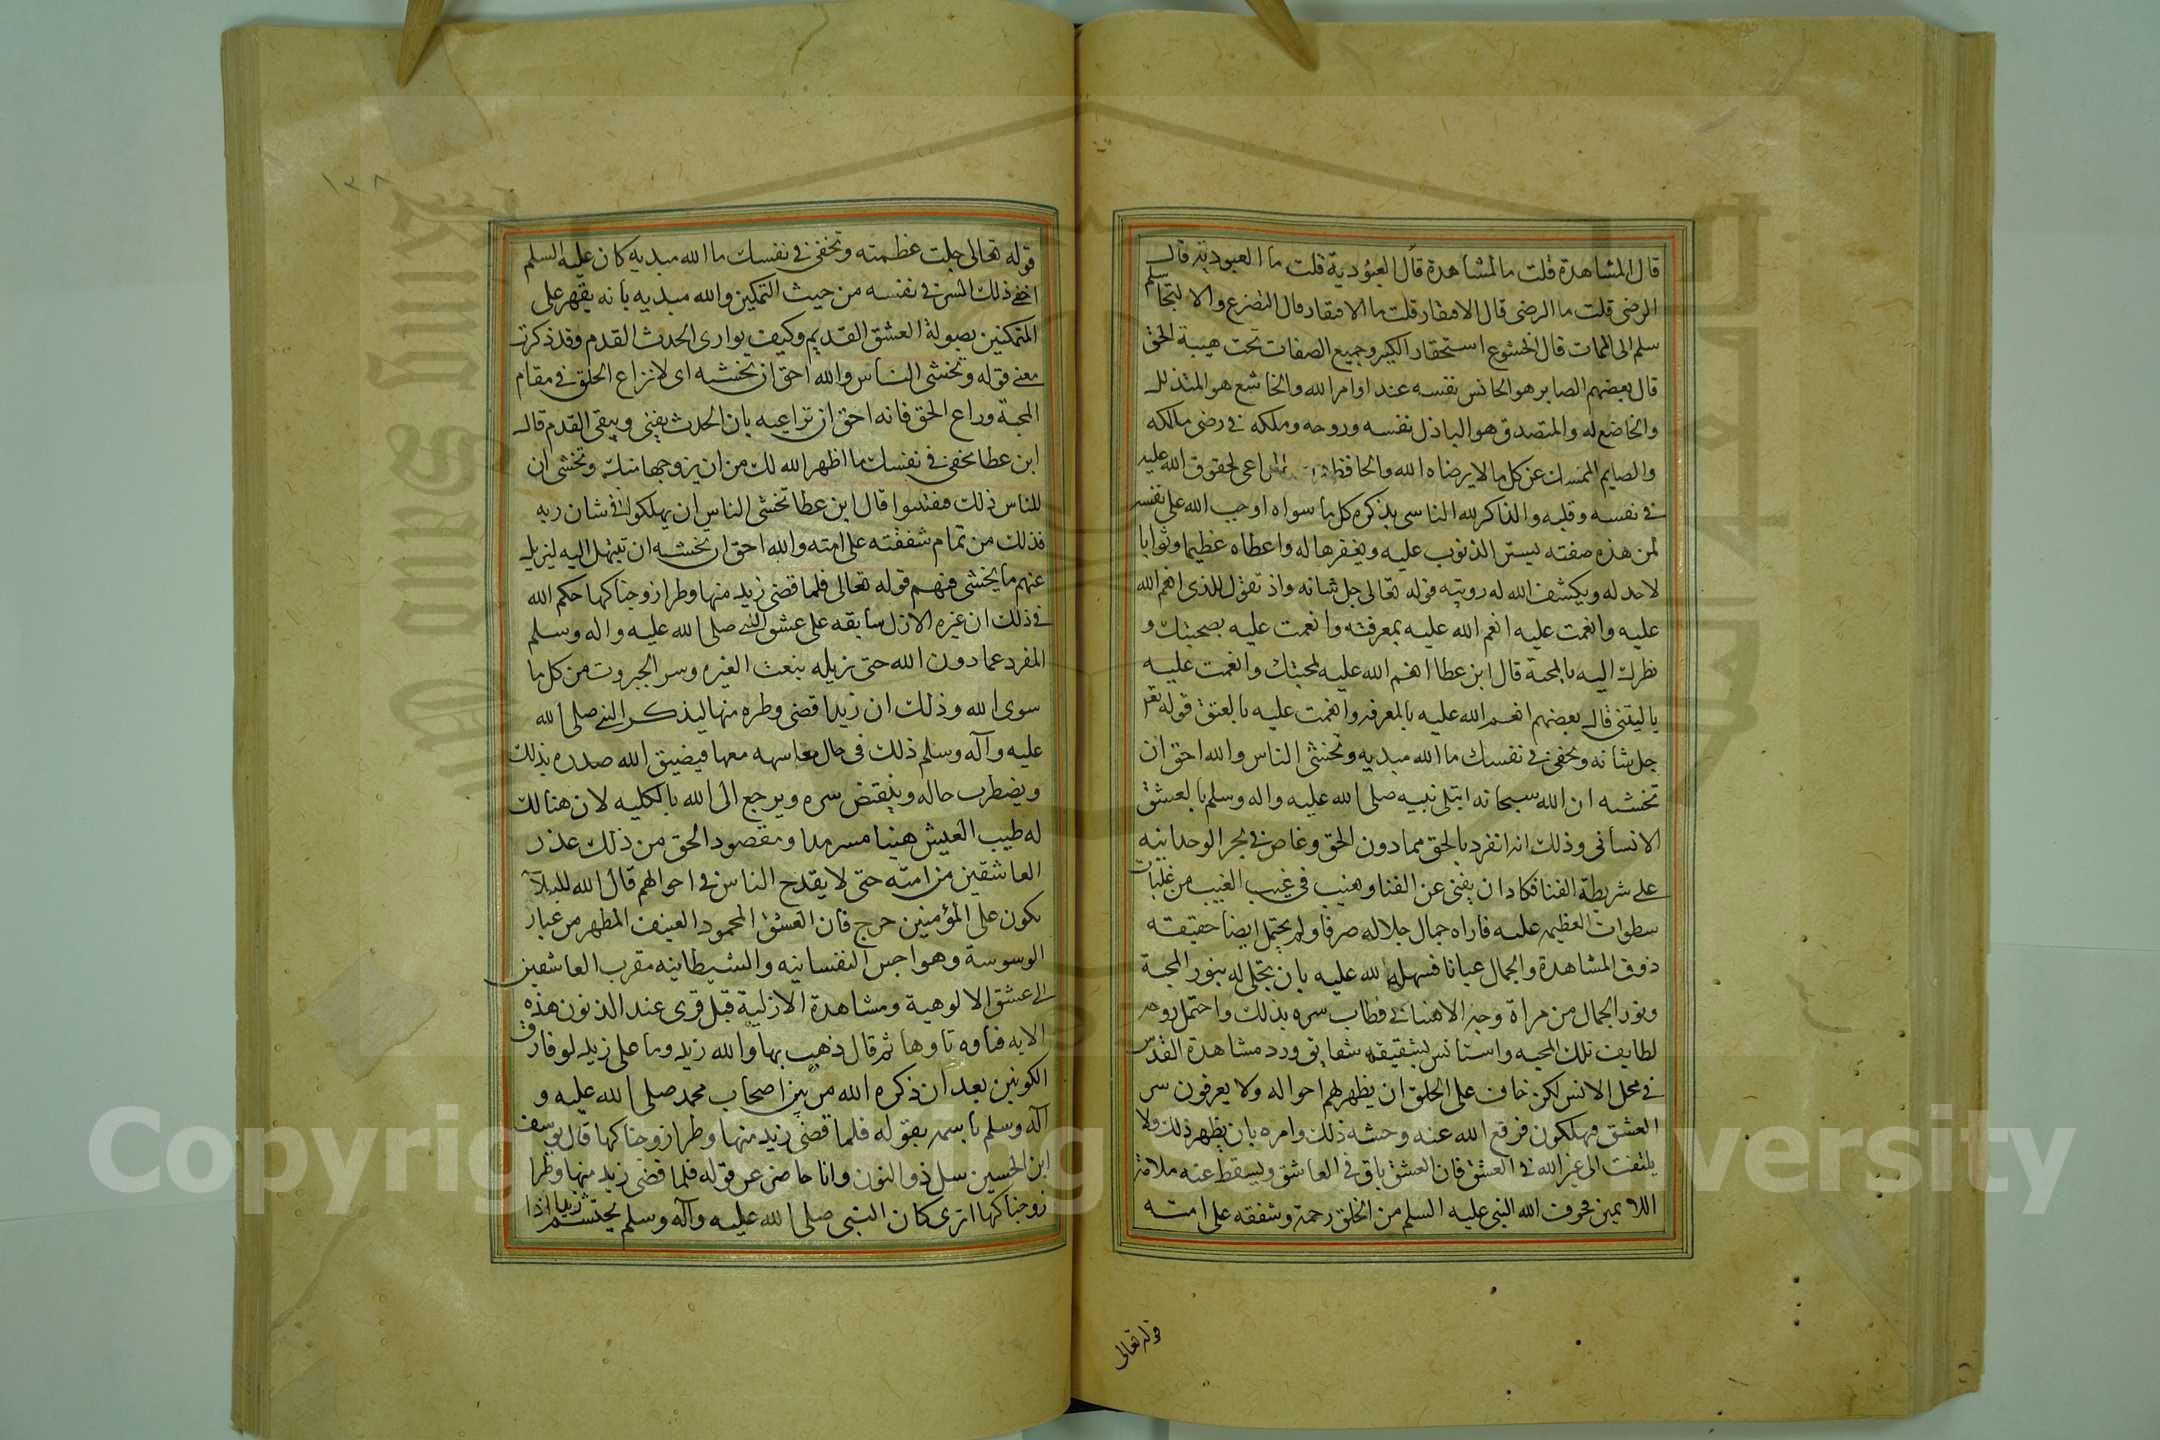 قال المشاهدة قلت ما المشاهدة قال العبودية قلت ما العبودية قال
الرضى قلت ما الرضى قال الافتقار قلت ما الافتقار قال التضرع والالتجا سلم
سلم الى الممات قال الخشوع استحقار الكبر وجميع الصفات تحت هيبة الحق
قال بعضهم الصابر هو الحابس نفسه عند اوامر الله والخاشع هو المتذلل
والخاضع له والمتصدق هو الباذل نفسه وروحه وملكه في رضى مالكه
والصايم الممسك عن كل ما لا يرضاه الله والحافظ المراعى لحقوق الله عليه
في نفسه وقلبه والذاكر لله الناسى بذكره كل ما سواه اوجب الله على نفسه
لمن هذه صفته يستر الذنوب عليه ويغفرها له واعطاه عظيما وثوابا
لا حد له ويكشف الله له رويته قوله تعالى جل شانه واذ تقول للذى انعم الله
عليه وانعمت عليه انعم الله عليه بمعرفته وانعمت عليه بصحبتك و
نظرك اليه بالمحبة قال ابن عطا انعم الله عليه لمحبتك وانعمت عليه
بالتبنى قال بعضهم انعم الله عليه بالمعرفه وانعمت عليه بالعتق قوله تعالى
جل شانه وتخفى في نفسك ما الله مبديه وتخشى الناس والله احق ان
تخشه ان الله سبحانه ابتلى نبيه صلى الله عليه واله وسلم بالعشق
الانسانى وذلك انه انفرد بالحق مما دون الحق وغاص في بحر الوحدانيه
على شريطة الفنا فكاد ان يفنى عن الفنا وهيب في غيب الغيب من غلبات
سطوات العظيم عليه فاراه جمال جلاله صرفا ولم يحتمل ايضا حقيقته
ذوق المشاهدة والجمال عيانا فسهل الله عليه بان تجلى له بنور المحبة
ونور الجمال من مراة وجه الانسان فطاب سره بذلك واحتمل روحه
لطايف تلك المحبه واستانس بشقيقه شقايق ورد مشاهدة القدس
في محل الانس لكن خاف على الخلق ان يظهر لهم احواله ولا يعرفون سر
العشق فيهلكون فرفع الله عنه وحشه ذلك وامره بان يظهر ذلك ولا
يلتفت الى غير الله في العشق فان العشق باق في العاشق ويسقط عنه ملامة
اللايمين فخوف الله النبى عليه السلم من الخلق رحمة وشفقه على امته
قوله تعالى
١٣٨
قوله تعالى جلت عظمته وتخفى في نفسك ما الله مبديه كان عليه السلم
اخفى ذلك السر في نفسه من حيث التمكين والله مبديه بانه يقهر على
المتمكنين بصولة العشق القديم وكيف يوارى الحدث القدم وقد ذكرت
معنى قوله وتخشى الناس والله احق ان تخشه اى لا نزاع الخلق في مقام
المحبة وراع الحق فانه احق ان تراعيه بان الحدث يفنى ويبقى القدم قال
ابن عطا تخفى في نفسك ما اظهر الله لك من ان يزوجها منك وتخشى ان
للناس ذلك مفتنوا قال ابن عطا تخشى الناس ان يهلكوا في شان ربه
فذلك من تمام شفقته على امته والله احق ان تخشه ان تبتهل اليه ليزيل
عنهم ما يخشى فيهم قوله تعالى فلما قضى زيد منها وطرا زوجناكها حكم الله
في ذلك ان غيره الازل سابقه على عشق النبى صلى الله عليه واله وسلم
المفرد عما دون الله حتى نزيله بنعت الغيره وسر الجبروت من كل ما
سوى الله وذلك ان زيدا قضى وطره منها ليذكر النبى صلى الله
عليه وآله وسلم ذلك في حال معها فيضيق الله صدره بذلك
ويضطرب حاله وينقبض سره ويرجع الى الله بالكليه لان هنالك
له طيب العيش هنيا سرمدا ومقصود الحق من ذلك عذر
العاشقين من امته حتى لا يقدح الناس في احوالهم قال الله لكيلا
يكون على المؤمنين حرج فان العشق المحمود العفيف المطهر من غبار
الوسوسة وهواجس النفسانيه والشيطانيه مقرب العاشقين
الى عشق الالوهية ومشاهدة الازلية قيل قرى عند الذنون هذه
الايه فتاوه تاوها ثم قال ذهب بها والله زيد وما على زيد لو فارق
الكونين بعد ان ذكره الله من بين اصحاب محمد صلى الله عليه و
آله وسلم باسمه بقوله فلما قضى زيد منها وطرا زوجناكها قال يوسف
ابن الحسين سل ذو النون وانا حاضر عن قوله فلما قضى زيد منها وطرا
زوجناكها اترى كان النبى صلى الله عليه وآله وسلم يحتشم زيدا اذا